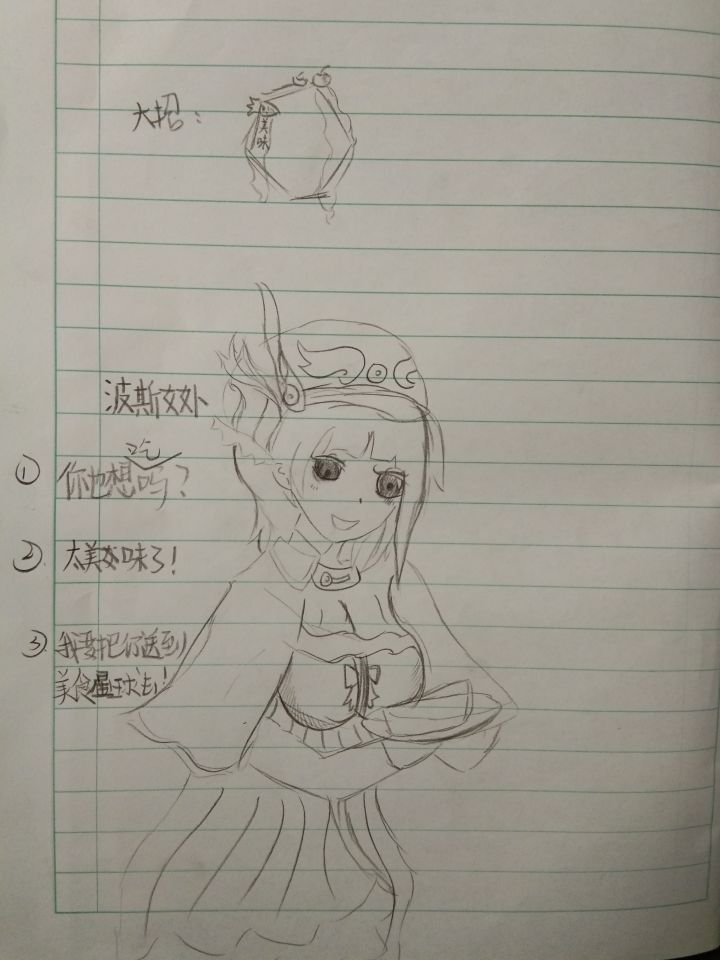 大招:
美味
波斯女外
吃
① 你也想吗?
② 太美女味了!
③ 我要把你送到
美食星球去!